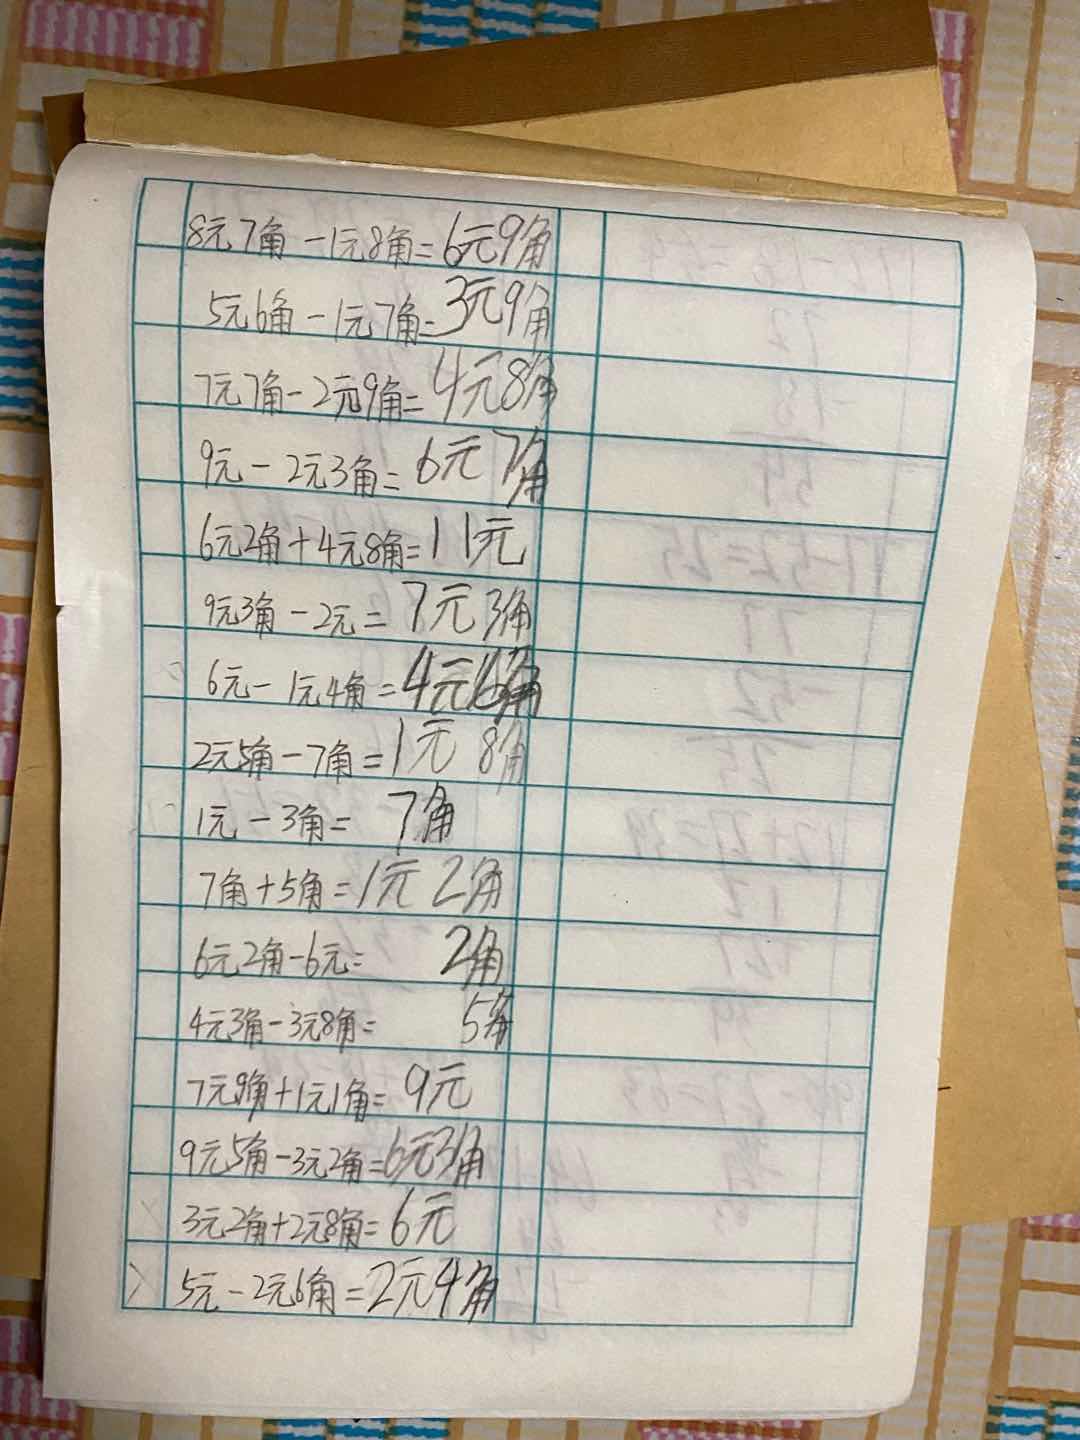 8元7角-1元8角=6元9角
5元6角-1元7角=3元9角
7元7角-2元9角=4元8角
9元-2元3角=6元7角
6元2角+4元8角=11元
9元3角-2元=7元3角
6元-1元4角=4元6角
2元5角-7角=1元8角
1元-3角=7角
7角+5角=1元2角
6元2角-6元=2角
4元3角-3元8角=5角
7元9角+1元1角=9元
9元5角-3元2角=6元3角
3元2角+2元8角=6元
5元-2元6角=2元4角